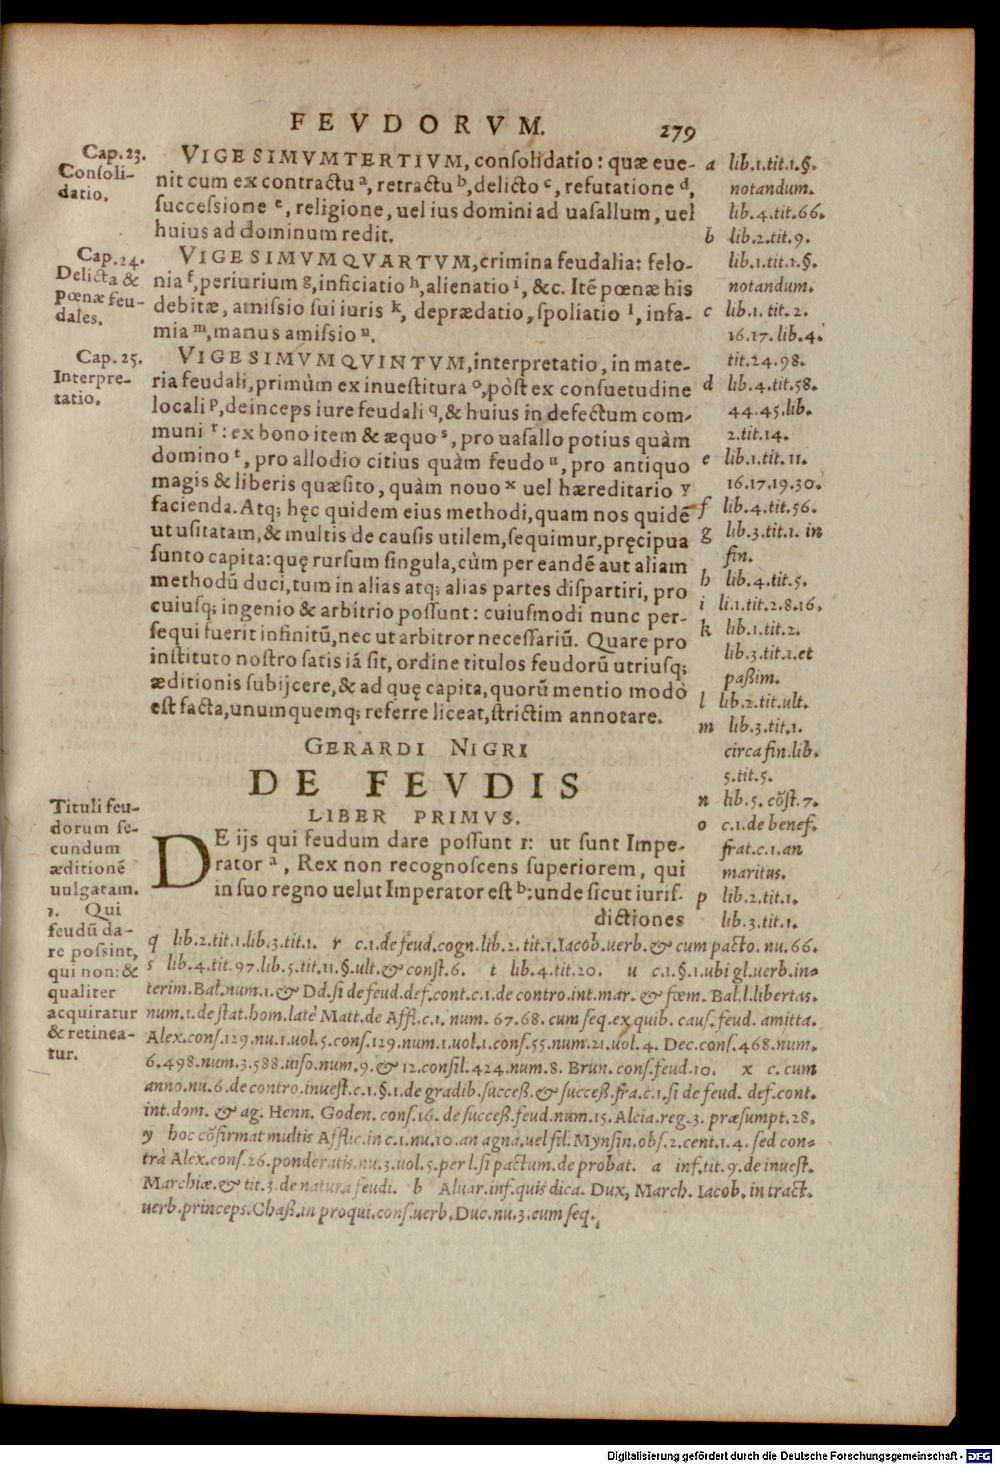 FEVDORVM.
279
Cap. 23.
Consoli-
datio.
VIGESIMVMTERTIVM, consolidatio: quæ eue-
nit cum ex contractu a, retractu b, delicto c, refutatione d,
successione e, religione, uel ius domini ad uasallum, uel
huius ad dominum redit.
Cap. 24.
Delicta &
pœnæ feu-
dales.
VIGESIMVMQVARTVM, crimina feudalia: felo-
nia f, periurium g, inficiatio h, alienatio i, &c. Itẽ pœnæ his
debitæ, amissio sui iuris k, deprædatio, spoliatio l, infa-
mia m, manus amissio n.
Cap. 25.
Interpre-
tatio.
VIGESIMVMQVINTVM, interpretatio, in mate-
ria feudali, primùm ex inuestitura o, pòst ex consuetudine
locali p, deinceps iure feudali q, & huius in defectum com-
muni r: ex bono item & æquo s, pro uasallo potius quàm
domino t, pro allodio citius quàm feudo u, pro antiquo
magis & liberis quæsito, quàm nouo x uel hæreditario y
facienda. Atq; hęc quidem eius methodi, quam nos quidẽ
ut usitatam, & multis de causis utilem, sequimur, pręcipua
sunto capita: quę rursum singula, cùm per eandẽ aut aliam
methodũ duci, tum in alias atq; alias partes dispartiri, pro
cuiusq; ingenio & arbitrio possunt: cuiusmodi nunc per-
sequi fuerit infinitũ, nec ut arbitror necessariũ. Quare pro
instituto nostro satis iã sit, ordine titulos feudorũ utriusq;
æditionis subijcere, & ad quę capita, quorũ mentio modò
est facta, unumquemq; referre liceat, strictim annotare.
a lib.1.tit.1.§.
notandum.
lib.4.tit.66.
b lib.2.tit.9.
lib.1.tit.1.§.
notandum.
c lib.1. tit. 2.
16.17. lib.4.
tit.24.98.
d lib.4.tit.58.
44.45.lib.
2.tit.14.
e lib.1.tit.11.
16.17.19.30.
f lib.4.tit.56.
g lib.3.tit.1. in
fin.
h lib.4.tit.5.
i li.1.tit.2.8.16.
k lib.1.tit.2.
lib.3.tit.1.et
paßim.
l lib.2.tit.ult.
m lib.3.tit.1.
circa fin.lib.
5.tit.5.
n lib.5. cõst.7.
o c.1.de benef.
frat.c.1.an
maritus.
p lib.2.tit.1.
lib.3.tit.1.
GERARDI NIGRI
DE FEVDIS
LIBER PRIMVS.
Tituli feu-
dorum se-
cundum
æditionẽ
uulgatam.
1. Qui
feudũ da-
re possint,
qui non: &
qualiter
acquiratur
& retinea-
tur.
DE ijs qui feudum dare possunt 1: ut sunt Impe-
rator a, Rex non recognoscens superiorem, qui
in suo regno uelut Imperator est b: unde sicut iuris-
dictiones
q lib.2.tit.1.lib.3.tit.1. r c.1.de feud.cogn.lib.2.tit.1.Iacob.uerb.& cum pacto. nu.66.
s lib.4.tit.97.lib.5.tit.11.§.ult.& const.6. t lib.4.tit.20. u c.1.§.1.ubi gl.uerb.in-
terim.Bal.num.1.& Dd.si de feud.def.cont.c.1.de contro.int.mar. & fœm. Bal.l.libertas.
num.1.de stat.hom.latè Matt.de Affl.c.1. num. 67.68. cum seq.ex quib. caus.feud. amitta.
Alex.cons.129.nu.1.uol.5.cons.129.num.1.uol.1.cons.55.num.21.uol.4. Dec.cons.468.num.
6.498.num.3.588.uiso.num.9.& 12.consil.424.num.8. Brun.cons.feud.10. x c.cum
anno.nu.6.de contro.inuest.c.1.§.1.de gradib.succeß.& succeß.fra.c.1.si de feud. def.cont.
int.dom. & ag. Henn. Goden. cons.16. de succeß.feud.num.15. Alcia.reg.3. præsumpt.28.
y hoc cõfirmat multis Afflic.in c.1.nu.10.an agna.uel fil. Mynsin.obs.2.cent.1.4. sed con-
trà Alex.cons.26.ponderatis.nu.3.uol.5.per l.si pactum.de probat. a inf.tit.9.de inuest.
Marchiæ.& tit.3.de natura feudi. b Aluar.inf.quis dica. Dux, March. Iacob. in tract.
uerb.princeps.Chaß.in proqui.cons.uerb.Duc.nu.3.cum seq.
Digitalisierung gefördert durch die Deutsche Forschungsgemeinschaft - DFG